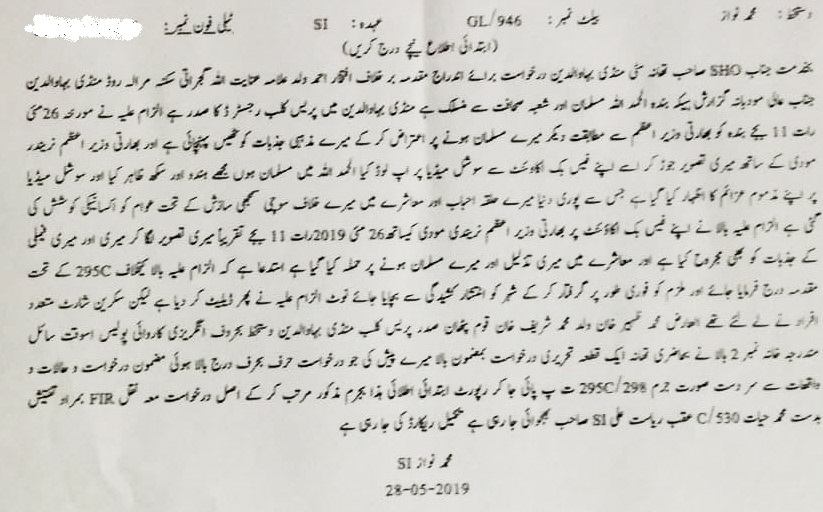 دستخط: محمد نواز بیلٹ نمبر: GL/946 عہدہ: SI ٹیلی فون نمبر:
(ابتدائی اطلاع نیچے درج کریں)
بخدمت جناب SHO صاحب تھانہ سٹی منڈی بہاوالدین درخواست برائے اندراج مقدمہ بر خلاف افتخار احمد ولد علامہ عنایت اللہ گجراتی سکنہ مرالہ روڈ منڈی بہاوالدین
جناب عالی مودبانہ گزارش ہیکہ بندہ الحمد اللہ مسلمان اور شعبہ صحافت سے منسلک ہے منڈی بہاوالدین میں پریس کلب رجسٹرڈ کا صدر ہے الزام علیہ نے مورخہ 26مئی
رات 11 بجے بندہ کو بھارتی وزیر اعظم سے مطابقت دیکر میرے مسلمان ہونے پر اعتراض کر کے میرے مذہبی جذبات کو ٹھیس پہنچائی ہے اور بھارتی وزیر اعظم نریندر
مودی کے ساتھ میری تصویر جوڑ کر اسے اپنے فیس بک اکاوئنٹ سے سوشل میڈیا پر اپ لوڈ کیا الحمد اللہ میں مسلمان ہوں مجھے ہندو اور سکھ ظاہر کیا اور سوشل میڈیا
پر اپنے مذموم عزائم کا اظہار کیا گیا ہے جس سے پوری دنیا میرے حلقہ احباب اور معاشرے میں میرے خلاف سوچی سمجھی سازش کے تحت عوام کو اکسانیکی کوشش کی
گئی ہے الزام علیہ بالا نے اپنے فیس بک اکاوئنٹ پر بھارتی وزیر اعظم نریندی مودی کیساتھ 26 مئی 2019رات 11 بجے تقریباً میری تصویر لگا کر میری اور میری فیملی
کے جذبات کو بھی مجروح کیا ہے اور معاشرے میں میری تذلیل اور میرے مسلمان ہونے پر حملہ کیا گیا ہے استدعا ہے کہ الزام علیہ بالا کیخلاف 295C کے تحت
مقدمہ درج فرمایا جائے اور ملزم کو فوری طور پر گرفتار کر کے شہر کو انتشار کشیدگی سے بچایا جائے نوٹ الزام علیہ نے پھر ڈیلیٹ کر دیا ہے لیکن سکرین شارٹ متعدد
افراد نے لے لئے تھے العارض محمد ظہیر خان ولد محمد شریف خان قوم پٹھان صدر پریس کلب منڈی بہاوالدین دستخط بحروف انگریزی کاروائی پولیس اسوقت سائل
مندرجہ خانہ نمبر 2 بالا نے بحاضری تھانہ ایک قطعہ تحریری درخواست بمضمون بالا میرے پیش کی جو درخواست حرف بحرف درج بالا ہوئی مضمون درخواست و حالات و
واقعات سے سر دست صورت جرم 295C/298 ت پ پائی جا کر رپورٹ ابتدائی اطلائی ہذا بجرم مذکور مرتب کر کے اصل درخواست معہ نقل FIR بمراد تفتیش
بدست محمد حیات C/530 عقب ریاست علی SI صاحب بھجوائی جا رہی ہے تکمیل ریکارڈ کی جا رہی ہے
محمد نواز SI
28-05-2019